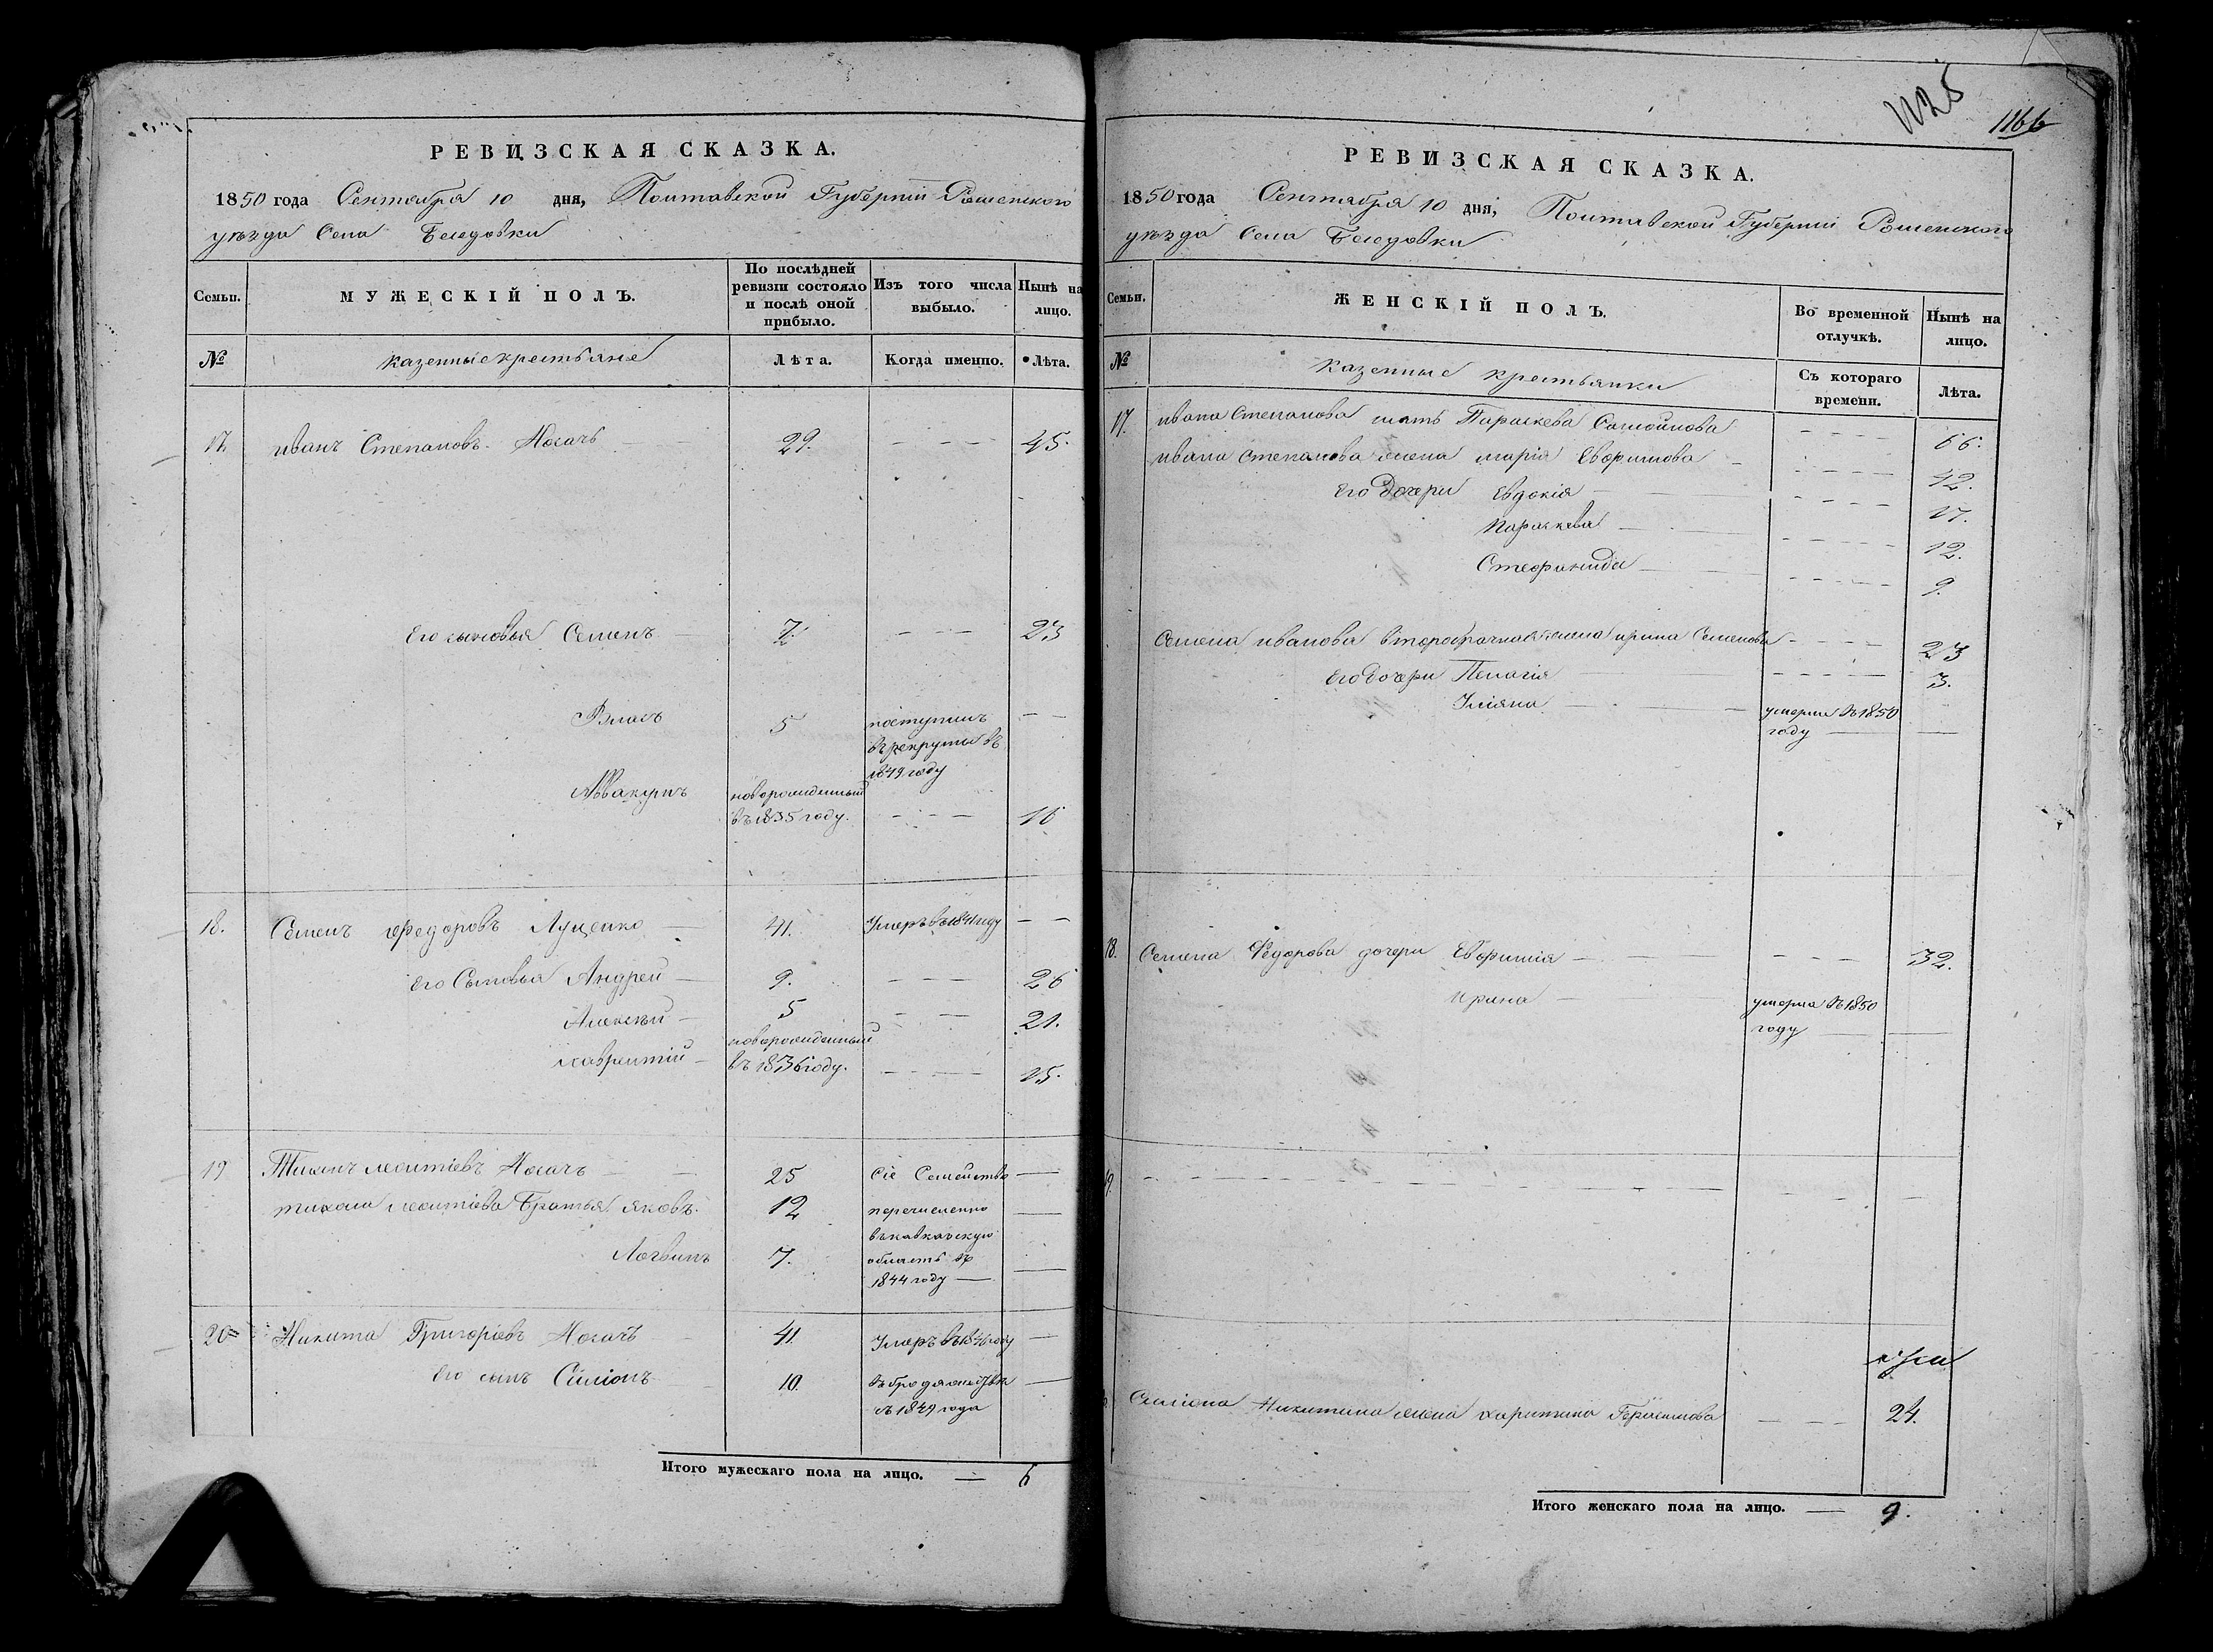 РЕВИЗСКАЯ СКАЗКА.
1850 года Сентября 10 дня, Полтавской Губерніи Роменского
уезда Села Беседовки
Семьи. МУЖЕСКІЙ ПОЛЪ. По послѣдней ревизіи состояло и послѣ оной прибыло. Изъ того числа выбыло. Нынѣ на лицо.
№ Казенные крестьяне Лѣта. Когда именно. Лѣта.
17. иванъ Степановъ Носачъ 29. 45.
Его сыновья Семенъ 7. 23
Власъ 5 поступилъ
въ рекруты въ
1849 году
Аввакумъ новорожденный
въ 1835 году. 16
18. Семенъ Федоровъ Луценко 41. Умеръ въ 1841 году
Его Сыновья Андрей 9. 26
Алексѣй 5 21.
Лаврентій новорожденный
въ 1836 году. 15.
19 Тихонъ Леонтіевъ Носачъ 25 Сіе Семейство
тихона Леонтіева Братья яковъ. 12 перечисленно
въ кавказскую
Логвинъ 7. область въ
1844 году
20 Никита Григоріевъ Носачъ 41. Умеръ въ 1846 году
Его сынъ Симіонъ 10. въ бродяжествѣ
съ 1849 года
Итого мужескаго пола на лицо. 6
1166
РЕВИЗСКАЯ СКАЗКА.
1850 года Сентября 10 дня, Полтавской Губерніи Роменского
уезда Села Беседовки
Семьи. ЖЕНСКІЙ ПОЛЪ. Во временной отлучкѣ. Нынѣ на лицо.
№ Казенные крестьянки Съ котораго времени. Лѣта.
17. ивана Степанова мать Параскева Самойлова 66.
ивана Степанова жена марія Евфимова 42.
Его дочери Евдокія 17.
Параскева 12.
Стефанида 9.
Семена иванова второбрачная жена ирина Семенова 23
Его дочери Пелагія 3.
Уліяна умерла въ 1850
году
18. Семена Федорова дочери Евфимія 32.
ирина умерла въ 1850
году
19.
Симіона Никитина жена харитина Герасимова 24.
Итого женскаго пола на лицо. 9.